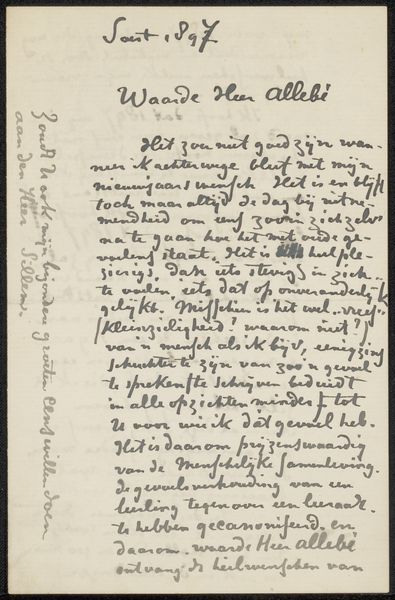 Soest 1897
Waarde Heer Allebé
Het zou niet goed zijn wan-
neer ik achterwege bleef met mijn
nieuwjaarswensch. Het is en blijft
toch maar altijd de dag bij uitne-
mendheid om eens zoo in zich zelv
na te gaan hoe het met onze ge-
voelens staat. Het is heel ple-
zierig, dan iets stevigs in zich
te voelen, iets dat op onveranderlijk
gelijkt. Misschien is het wel
kleinzieligheid? waarom niet?
van 'n mensch als ik bijv, eenigzins
schuchter te zijn van zoo'n gevoel
te spreken of te schrijven beduidt
in alle opzichten minder tot
U voor wie ik dat gevoel heb.
Het is daarom prijzenswaardig
van de Menschelijke Samenleving.
de gevoelsverhouding van een
leerling tegenover een leeraar.
te hebben gecanoniseerd. en
daarom. waarde Heer Allebé
ontvang de heilwenschen van
Zoudt U ook mijn bijzondere groeten eens willen doen
aan den Heer Sillem.